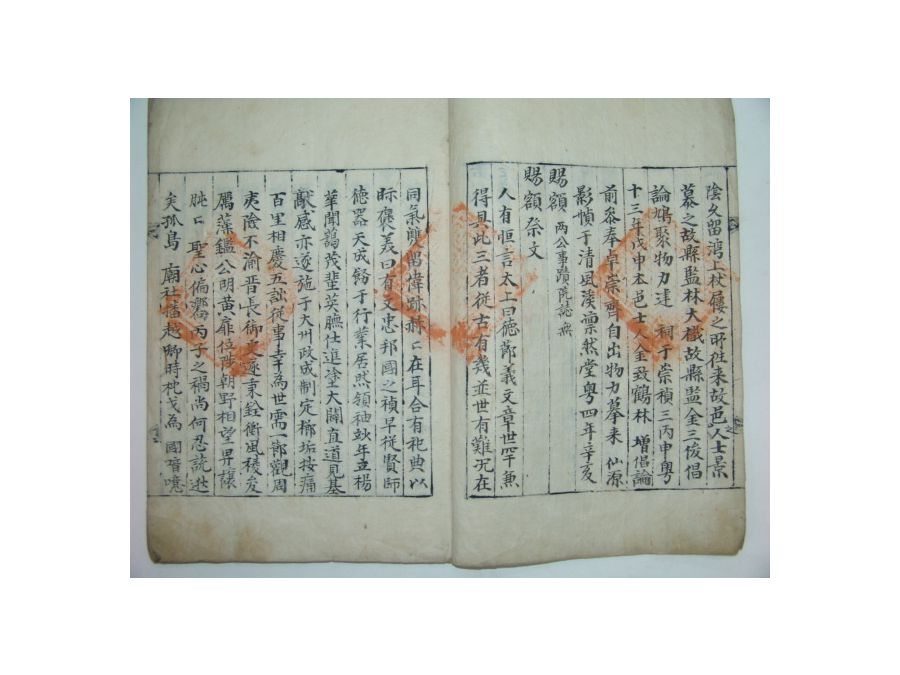 陰久留湾上杖屨之所往来故邑人士景
慕之故縣監林大檝故縣監金三俊倡
論鳩聚物力建 祠于崇禎三丙申粤
十三年戊申本邑士人金致鶴林 增倡論
前叅奉卓崇 自出物力摹来 仙源
影幀于清風溪凛然堂粤四年辛亥
賜額 两公事蹟院誌
賜額祭文
人有恒言太上曰德節義文章世罕兼
得具此三者従古有幾並世有難况在
同氣 留偉跡赫〻在耳合有祀典以
眎褒美曰有文忠邦國之禎早従賢師
德器天成餝于行業居然領袖妙年立楊
華聞藹茂蜚英膴仕進塗大闢直道見基
獻感亦遂施于大州政成制定櫛垢按痛
百里相慶五訟従事幸為世需一節觀周
夷險不渝晋長御史遂秉銓衡風稜爰
厲藻鑑公明黄扉位隮朝野相望畀讓
肫〻 聖心偏嚮丙子之禍尚何忍說逖
矣孤島 廟社播越 時枕戈為 國喑噫